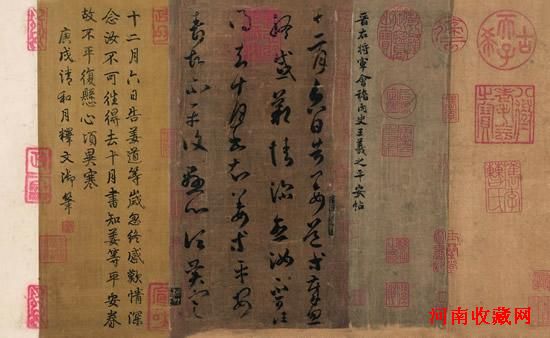 古希天子
八徵耄念之寶
晉右將軍會稽内史王羲之平安帖
十二月六日告姜道等歲忽
終感歎情深念汝不可往
得去十月書知姜等平安
眷故不平復懸心頃異寒
十二月六日告姜道等歲忽終感歎情深
念汝不可往得去十月書知姜等平安眷
故不平復懸心頃異寒
庚戌清和月釋文御筆
河南收藏网